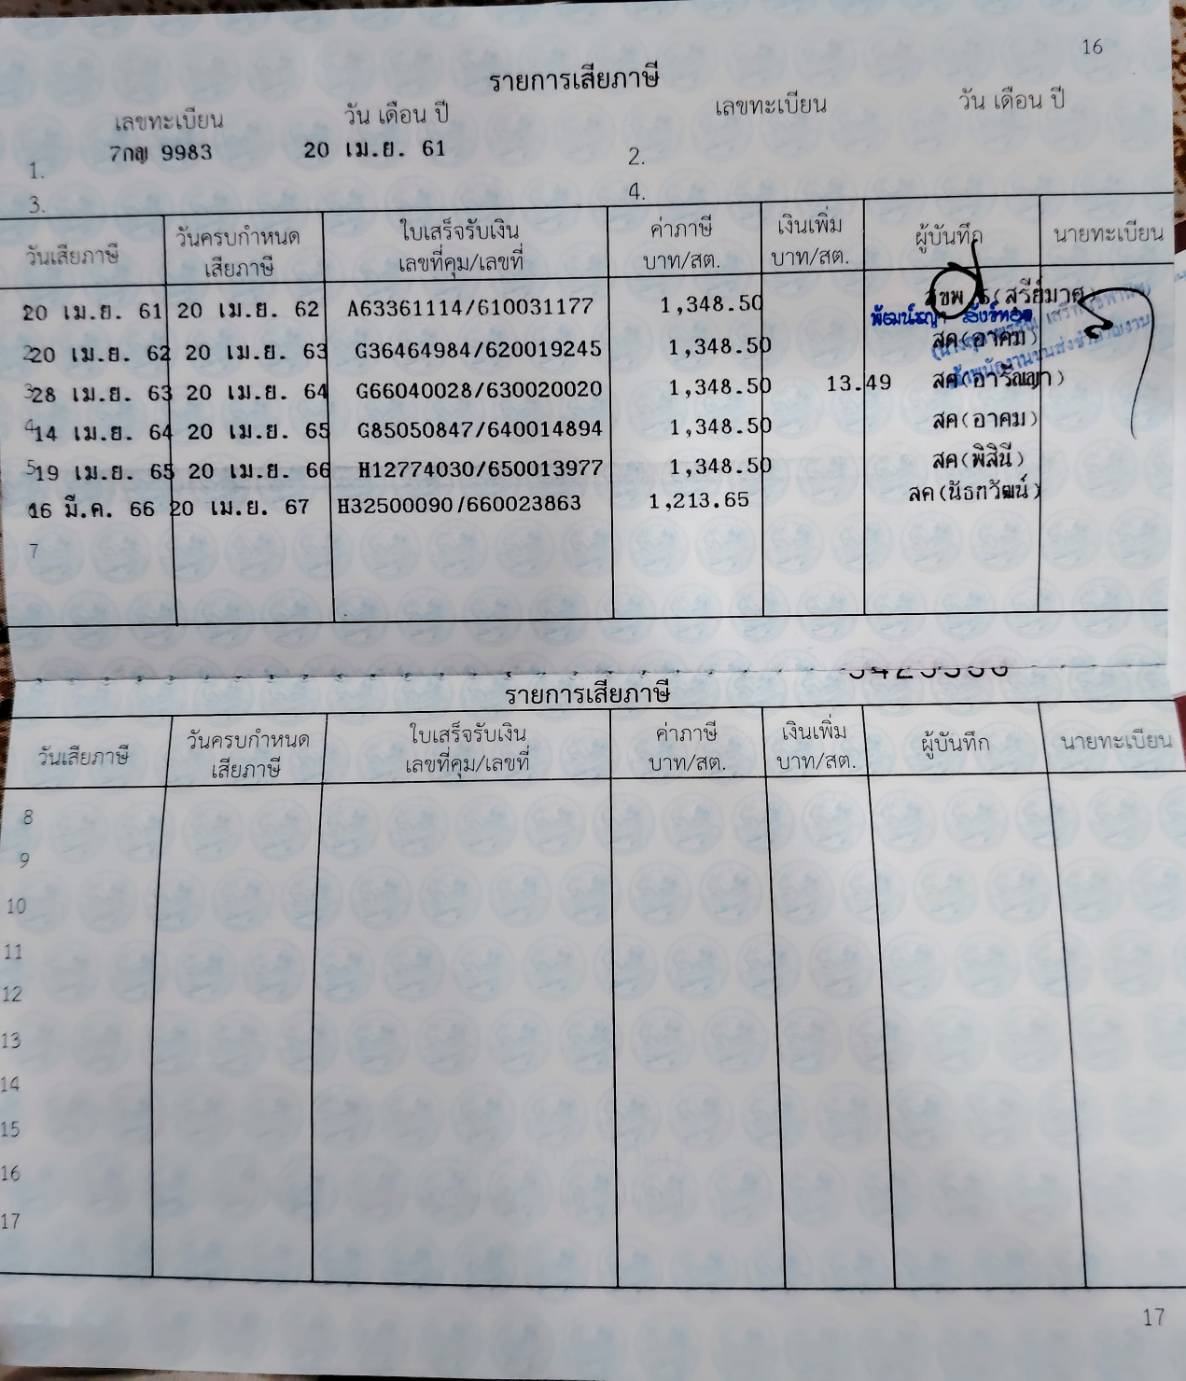 16
รายการเสียภาษี
เลขทะเบียน วัน เดือน ปี เลขทะเบียน วัน เดือน ปี
1. 7กญ 9983 20 เม.ย. 61 2.
3. 4.
วันเสียภาษี วันครบกำหนดเสียภาษี ใบเสร็จรับเงิน เลขที่คุม/เลขที่ ค่าภาษี บาท/สต. เงินเพิ่ม บาท/สต. ผู้บันทึก นายทะเบียน
20 เม.ย. 61 20 เม.ย. 62 A63361114/610031177 1,348.50
2 20 เม.ย. 62 20 เม.ย. 63 G36464984/620019245 1,348.50 สค(อาคม)
3 28 เม.ย. 63 20 เม.ย. 64 G66040028/630020020 1,348.50 13.49 สค(อารัญญา)
4 14 เม.ย. 64 20 เม.ย. 65 G85050847/640014894 1,348.50 สค(อาคม)
5 19 เม.ย. 65 20 เม.ย. 66 H12774030/650013977 1,348.50 สค(พิสินี)
16 มี.ค. 66 20 เม.ย. 67 H32500090/660023863 1,213.65 สค(นัธทวัฒน์)
7
รายการเสียภาษี
วันเสียภาษี วันครบกำหนดเสียภาษี ใบเสร็จรับเงิน เลขที่คุม/เลขที่ ค่าภาษี บาท/สต. เงินเพิ่ม บาท/สต. ผู้บันทึก นายทะเบียน
8
9
10
11
12
13
14
15
16
17
17